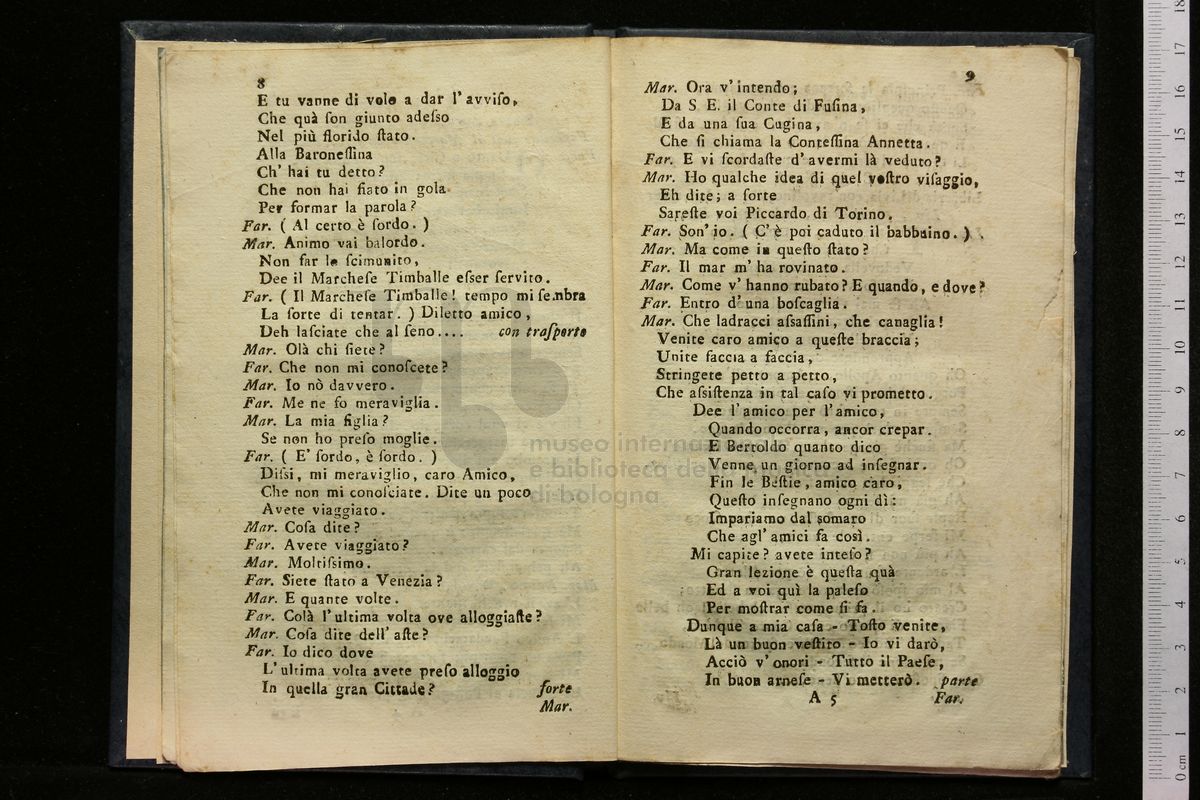 8
E tu vanne di volo a dar l'avviſo,
Che quà ſon giunto adeſso
Nel più florido ſtato.
Alla Baroneſſina
Ch' hai tu detto?
Che non hai fiato in gola
Per formar la parola?
Far. ( Al certo è ſordo. )
Mar. Animo vai balordo.
Non far lo ſcimunito,
Dee il Marcheſe Timballe eſser ſervito.
Far. ( Il Marcheſe Timballe! tempo mi ſembra
La ſorte di tentar. ) Diletto amico,
Deh laſciate che al ſeno.... con traſporto
Mar. Olà chi ſiete?
Far. Che non mi conoſcete?
Mar. Io nò davvero.
Far. Me ne fo meraviglia.
Mar. La mia figlia?
Se non ho preſo moglie.
Far. ( E' ſordo, è ſordo. )
Diſsi, mi meraviglio, caro Amico,
Che non mi conoſciate. Dite un poco
Avete viaggiato.
Mar. Coſa dite?
Far. Avete viaggiato?
Mar. Moltiſsimo.
Far. Siete ſtato a Venezia?
Mar. E quante volte.
Far. Colà l'ultima volta ove alloggiaſte?
Mar. Coſa dite dell' aſte?
Far. Io dico dove
L' ultima volta avete preſo alloggio
In quella gran Cittade? forte
Mar.
9
Mar. Ora v' intendo;
Da S E. il Conte di Fuſina,
E da una ſua Cugina,
Che ſi chiama la Conteſſina Annetta.
Far. E vi ſcordaſte d' avermi là veduto?
Mar. Ho qualche idea di quel voſtro viſaggio,
Eh dite; a ſorte
Sareſte voi Piccardo di Torino.
Far. Son' io. ( C' è poi caduto il babbuino. )
Mar. Ma come in queſto ſtato?
Far. Il mar m' ha rovinato.
Mar. Come v' hanno rubato? E quando, e dove?
Far. Entro d' una boſcaglia.
Mar. Che ladracci aſsaſſini, che canaglia!
Venite caro amico a queſte braccia;
Unite faccia a faccia,
Stringete petto a petto,
Che aſsiſtenza in tal caſo vi prometto.
Dee l' amico per l' amico,
Quando occorra, ancor crepar.
E Bertoldo quanto dico
Venne un giorno ad inſegnar.
Fin le Beſtie, amico caro,
Queſto inſegnano ogni dì:
Impariamo dal ſomaro
Che agl' amici fa così.
Mi capite? avete inteſo?
Gran lezione è queſta quà
Ed a voi quì la paleſo
Per moſtrar come ſi fa.
Dunque a mia caſa - Toſto venite,
Là un buon veſtito - Io vi darò,
Acciò v' onori - Tutto il Paeſe,
In buon arneſe - Vi metterò. parte
A 5 Far.
museo internazionale
e biblioteca della musica
di bologna